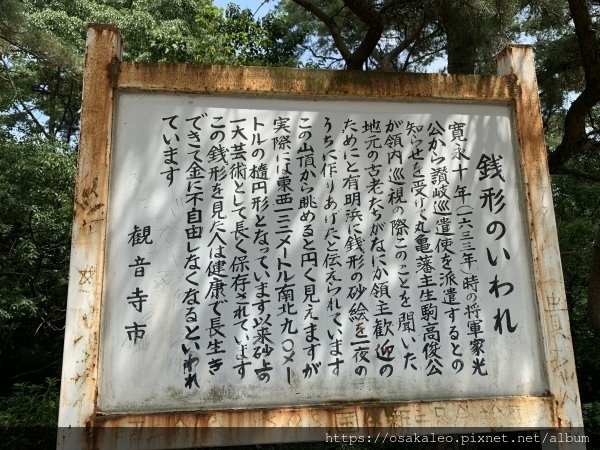 銭形のいわれ
寛永十年(一六三三年)時の将軍家光
公から讃岐巡遣使を派遣するとの
知らせを受けて丸亀藩主生駒高俊公
が領内巡視の際このことを聞いた
地元の古老たちがなにか領主歓迎の
ためにと有明浜に銭形の砂絵を一夜の
うちに作りあげたと伝えられています
この山頂から眺めると円く見えますが
実際には東西一二二メートル南北九〇メー
トルの楕円形となっています以来砂上の
一大芸術として長く保存されています
この銭形を見た人は健康で長生き
できて金に不自由しなくなるといわれ
ています
観音寺市
https://osakaleo.pixnet.net/album